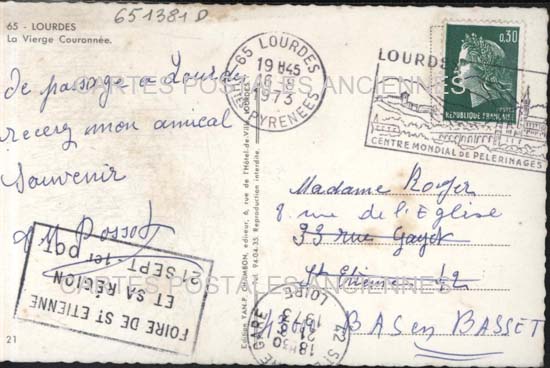 651381 D
65 - LOURDES
La Vierge Couronnée.
de passage a Lourdes
recevez mon amical
souvenir
FOIRE DE ST ETIENNE
ET SA RÉGION
21 SEPT - 1er OCT
21
Edition YAN-P. CHAMBON, éditeur, 6, rue de l'Hôtel-de-Ville, LOURDES
Tél. 94.04.35. Reproduction interdite.
65 LOURDES
19 H45
1973
PYRENEES
0,30
REPUBLIQUE FRANÇAISE
LOURDES
CENTRE MONDIAL DE PELERINAGES
CARTES POSTALES ANCIENNES
Madame Roger
8 rue de l'Eglise
33 rue Gayet
St Etienne 42
BAS en BASSET
42 ST
GARE
18H30
21
1973
LOIRE
CARTES POSTALES ANCIENNES